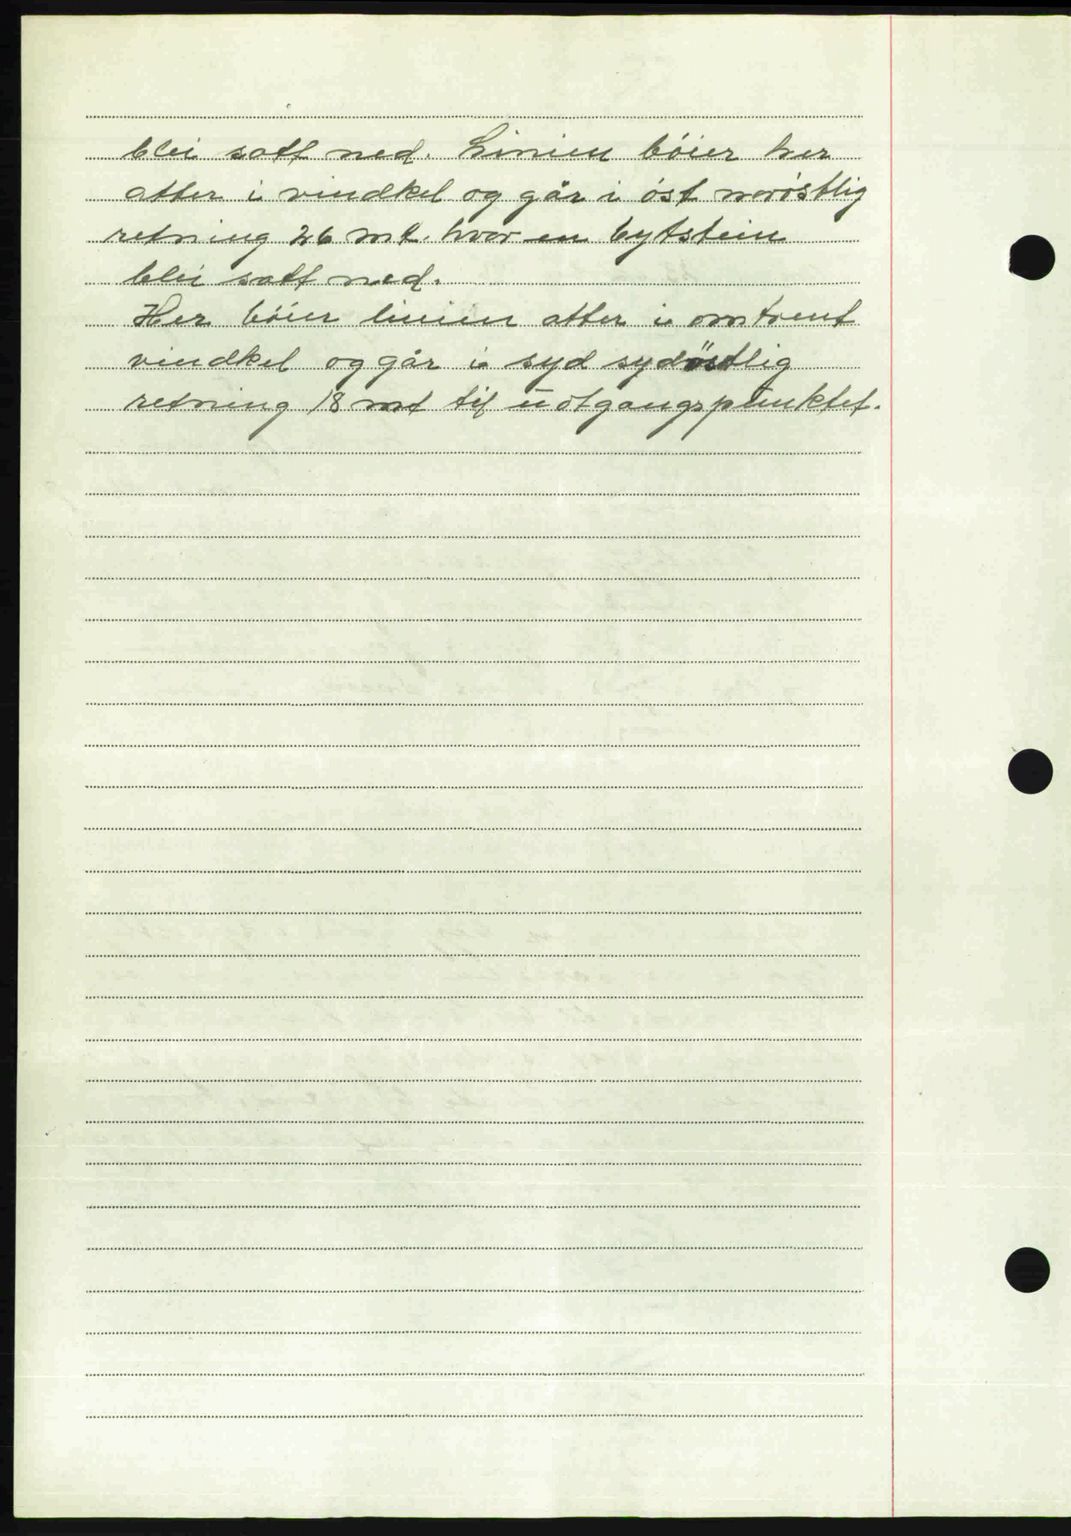 blei satt ned. Linien bøier her
atter i vindkel og går i øst norøstlig
retning 26 mt. hvor en bytstein
blei satt ned.
Her bøier linien atter i omtrent
vindkel og går i syd sydöstlig
retning 18 mt til utgangspunktet.